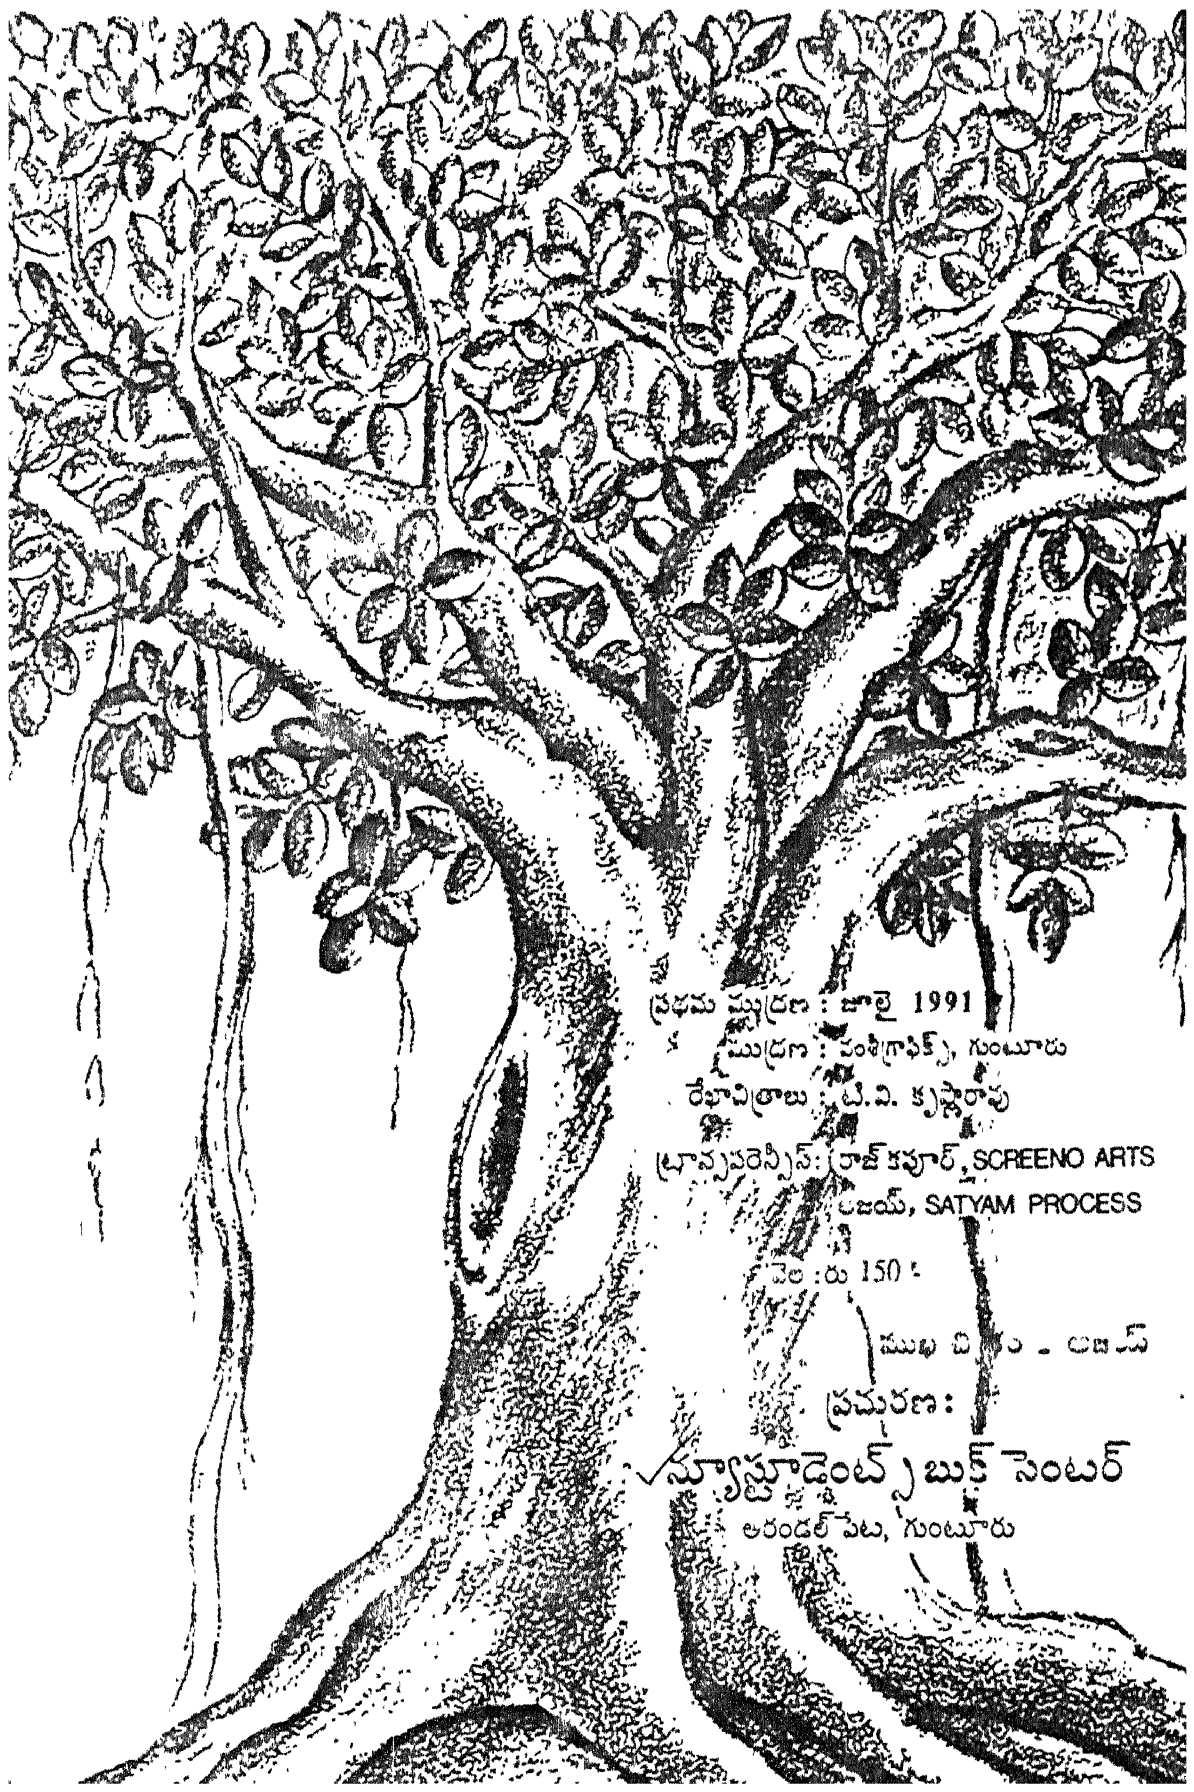 ప్రథమ ముద్రణ : జూలై 1991
ముద్రణ : వంశీగ్రాఫిక్స్, గుంటూరు
రేఖాచిత్రాలు : టి.వి. కృష్ణారావు
ట్రాన్సపరెన్సీస్: రాజ్ కపూర్, SCREENO ARTS
జయ్, SATYAM PROCESS
వెల :రు 150
ముఖ చిత్రం -
ప్రచురణ:
న్యూస్టూడెంట్స్ బుక్ సెంటర్
అరండల్ పేట, గుంటూరు